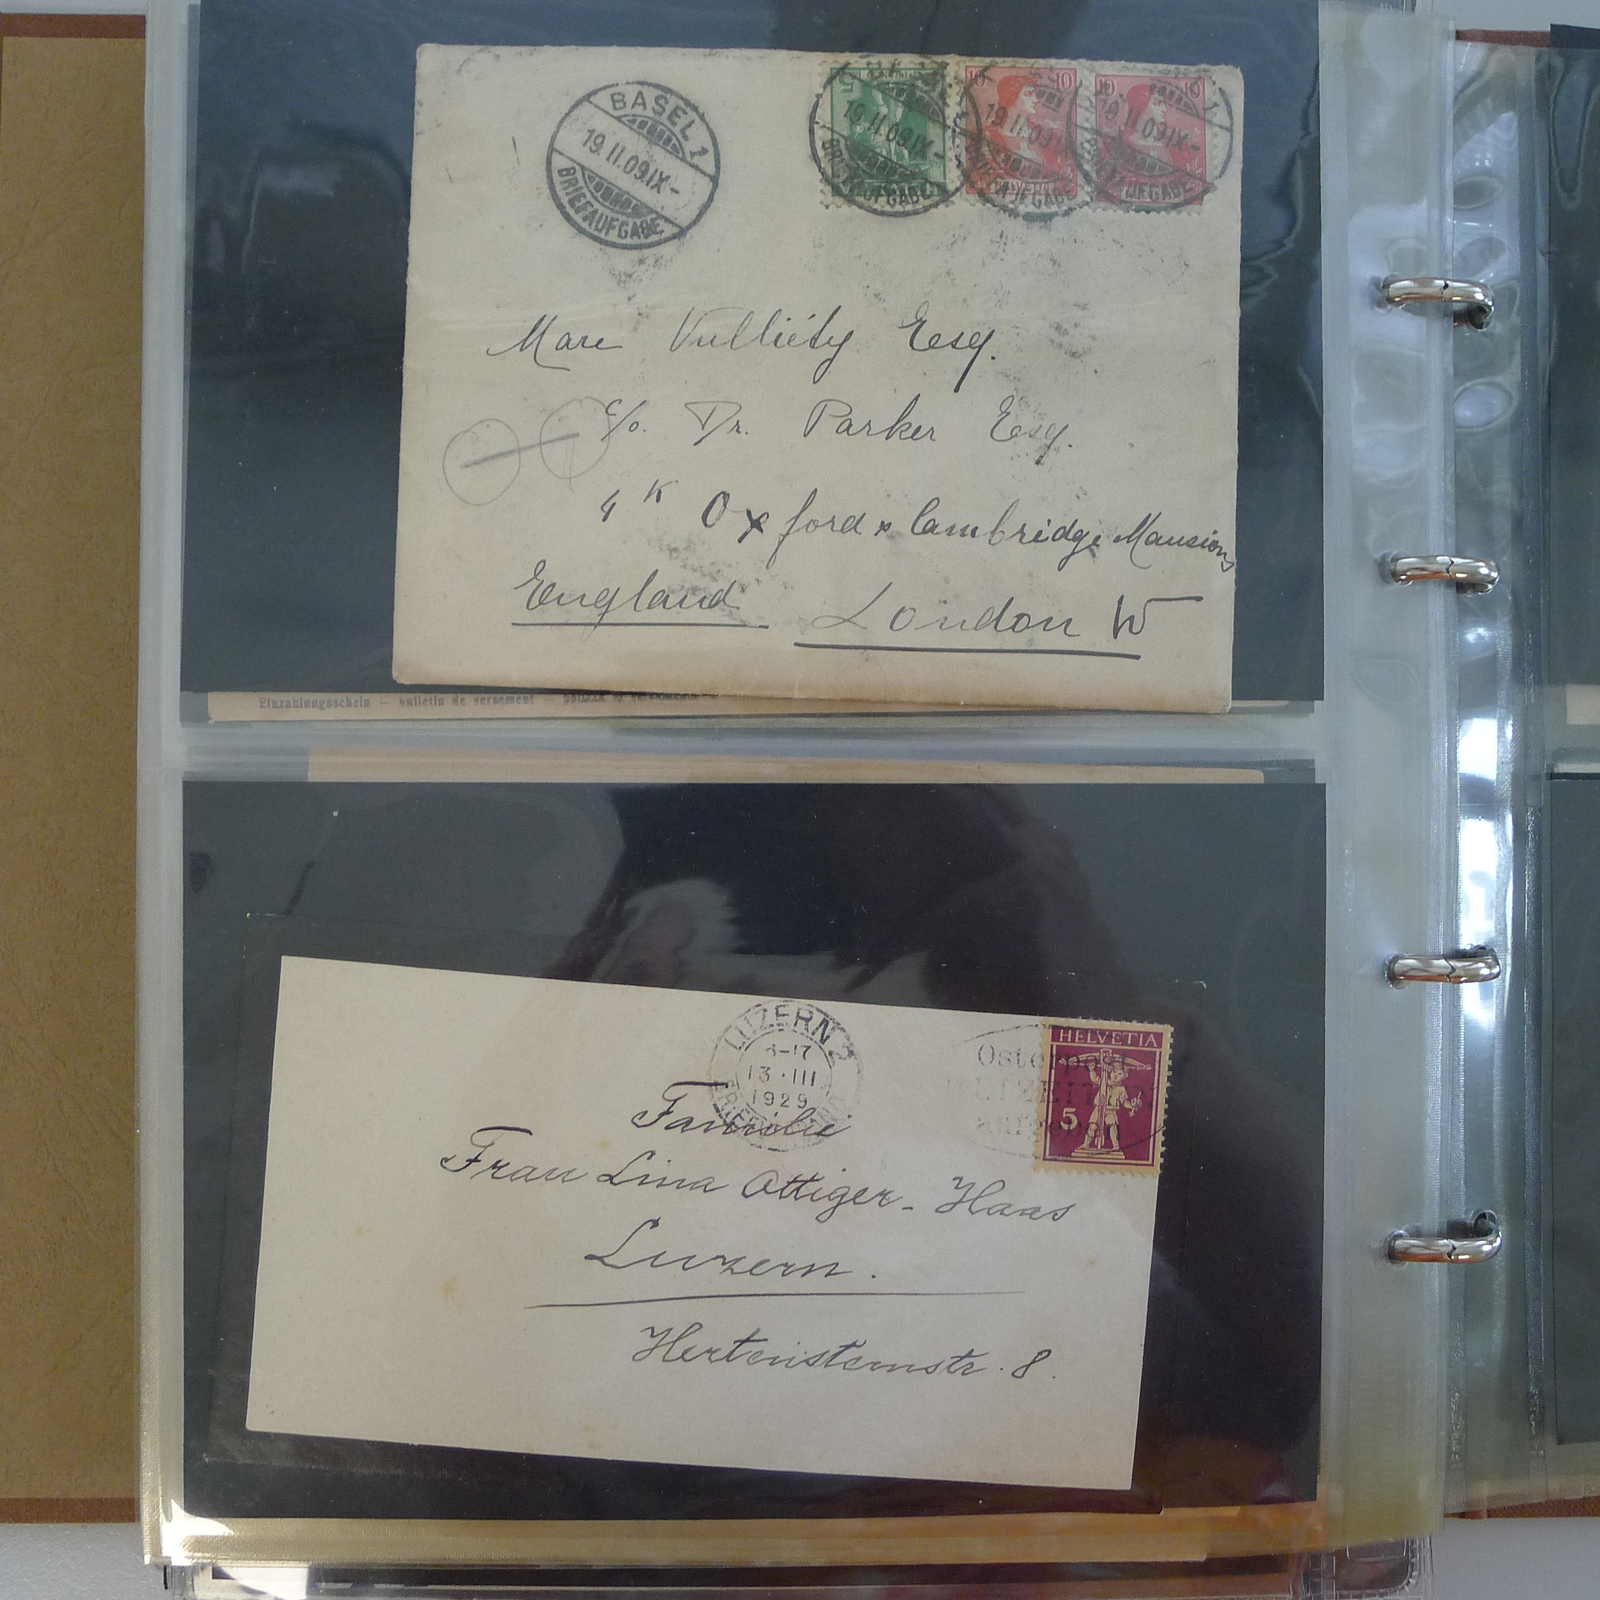 BASEL 1
19.II.09.IX-
BRIEFAUFGABE
5
10 10
10 10
19.II.09.IX-
BRIEFAUFGABE
19.II.09.I
19.II.09.IX-
Marc Vulliéty Esq.
c/o. Dr. Parker Esq.
4 K Oxford & Cambridge Mansions
England London W
Einzahlungsschein — Bulletin de versement —
LUZERN 2
-17
13.III
1929
HELVETIA
5
Familie
Frau Lina Ottiger-Haas
Luzern.
Hertensteinstr. 8.